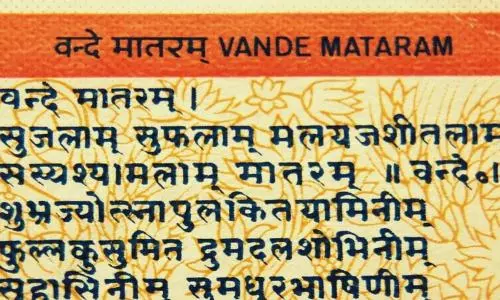 वन्दे मातरम् VANDE MATARAM
वन्दे मातरम् ।
सुजलाम् सुफलाम् मलयजशीतलाम
सस्यश्यामलाम् मातरम् ॥ वन्दे०।
शुभ्रज्योत्स्नापुलकितयामिनीम्
फुल्लकुसुमित द्रुमदलशोभिनीम्
सुहासिनीम् सुमधुरभाषिणीम्